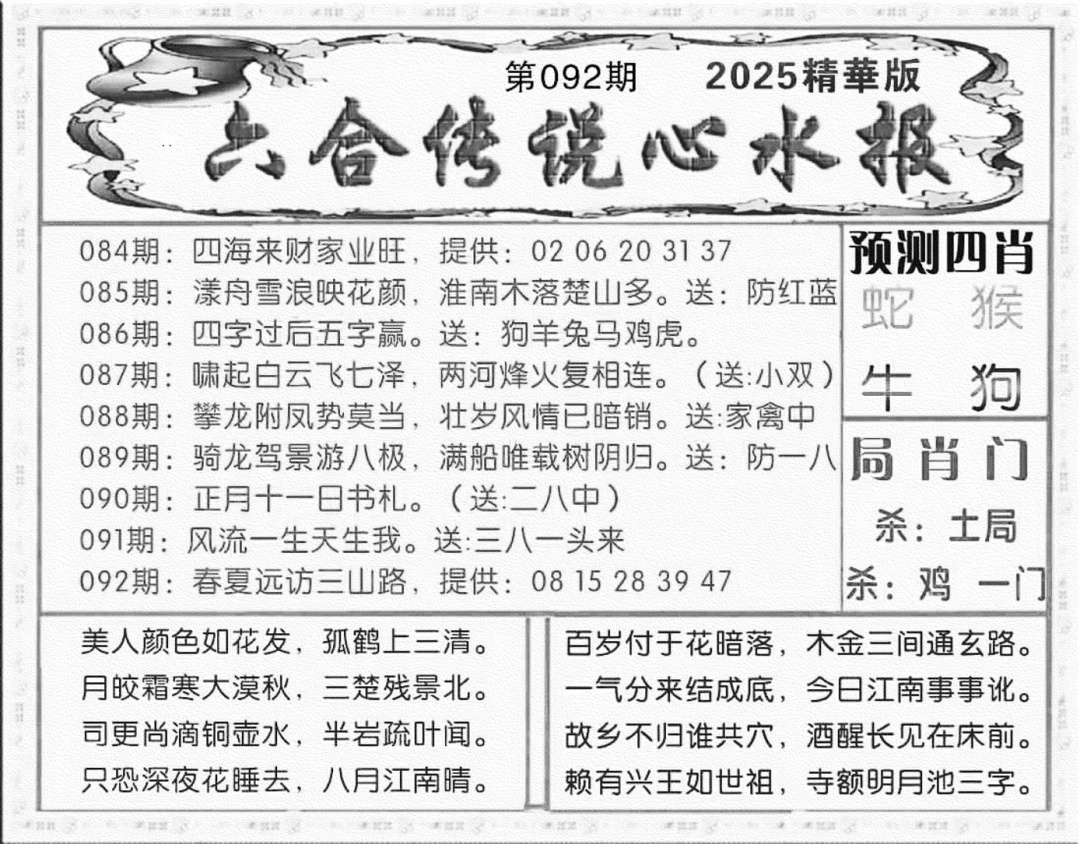 第092期 2025精華版
六合传说心水报
084期：四海来财家业旺，提供：02 06 20 31 37
085期：漾舟雪浪映花颜，淮南木落楚山多。送：防红蓝
086期：四字过后五字赢。送：狗羊兔马鸡虎。
087期：啸起白云飞七泽，两河烽火复相连。（送:小双）
088期：攀龙附凤势莫当，壮岁风情已暗销。送:家禽中
089期：骑龙驾景游八极，满船唯载树阴归。送：防一八
090期：正月十一日书札。（送:二八中）
091期：风流一生天生我。送:三八一头来
092期：春夏远访三山路，提供：08 15 28 39 47
预测四肖
蛇 猴
牛 狗
局肖门
杀：土局
杀：鸡 一门
美人颜色如花发，孤鹤上三清。
月皎霜寒大漠秋，三楚残景北。
司更尚滴铜壶水，半岩疏叶闻。
只恐深夜花睡去，八月江南晴。
百岁付于花暗落，木金三间通玄路。
一气分来结成底，今日江南事事讹。
故乡不归谁共穴，酒醒长见在床前。
赖有兴王如世祖，寺额明月池三字。